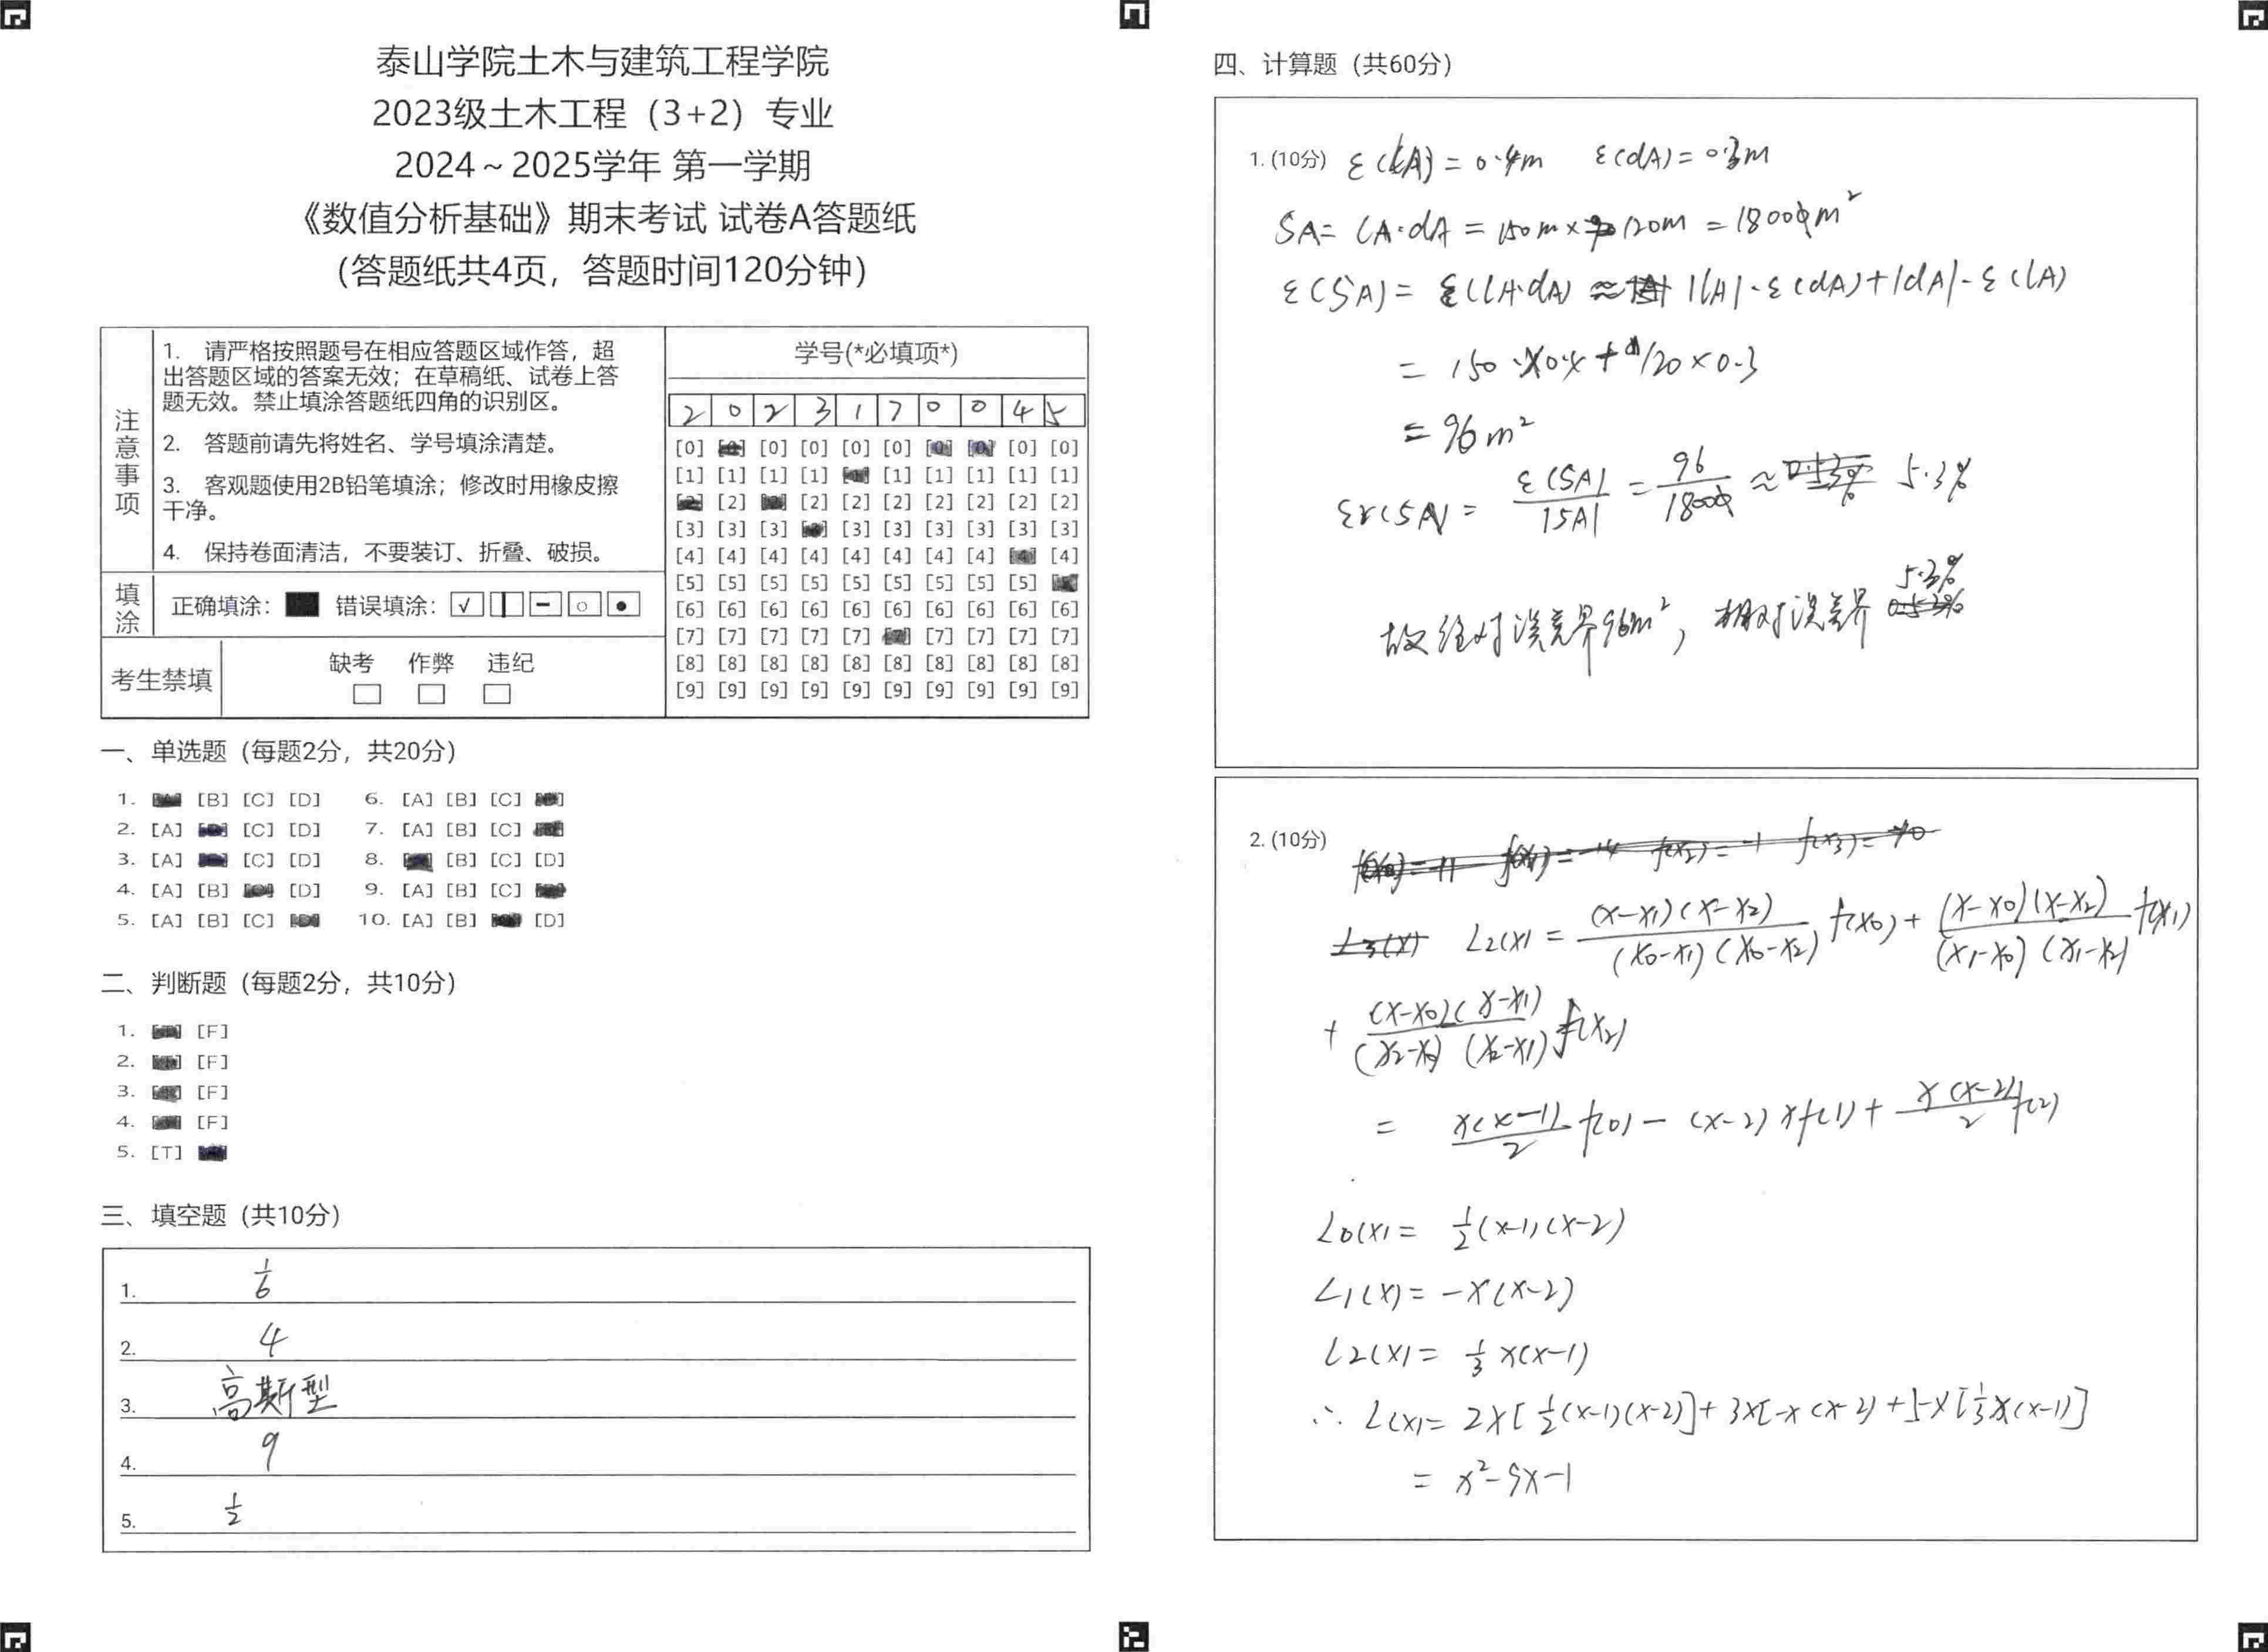 泰山学院土木与建筑工程学院
2023级土木工程（3+2）专业
2024～2025学年 第一学期
《数值分析基础》期末考试 试卷A答题纸
（答题纸共4页，答题时间120分钟）
注意事项
1. 请严格按照题号在相应答题区域作答，超
出答题区域的答案无效；在草稿纸、试卷上答
题无效。禁止填涂答题纸四角的识别区。
2. 答题前请先将姓名、学号填涂清楚。
3. 客观题使用2B铅笔填涂；修改时用橡皮擦
干净。
4. 保持卷面清洁，不要装订、折叠、破损。
填涂
正确填涂： 错误填涂：
考生禁填
缺考 作弊 违纪
学号(*必填项*)
2 0 2 3 1 7 0 0 4 5
[0] [0] [0] [0] [0] [0] [0] [0]
[1] [1] [1] [1] [1] [1] [1] [1] [1]
[2] [2] [2] [2] [2] [2] [2] [2]
[3] [3] [3] [3] [3] [3] [3] [3] [3]
[4] [4] [4] [4] [4] [4] [4] [4] [4]
[5] [5] [5] [5] [5] [5] [5] [5] [5]
[6] [6] [6] [6] [6] [6] [6] [6] [6] [6]
[7] [7] [7] [7] [7] [7] [7] [7] [7]
[8] [8] [8] [8] [8] [8] [8] [8] [8] [8]
[9] [9] [9] [9] [9] [9] [9] [9] [9] [9]
一、单选题（每题2分，共20分）
1. [B] [C] [D] 6. [A] [B] [C]
2. [A] [C] [D] 7. [A] [B] [C]
3. [A] [C] [D] 8. [B] [C] [D]
4. [A] [B] [D] 9. [A] [B] [C]
5. [A] [B] [C] 10. [A] [B] [D]
二、判断题（每题2分，共10分）
1. [F]
2. [F]
3. [F]
4. [F]
5. [T]
三、填空题（共10分）
1. 1/6
2. 4
3. 高斯型
4. 9
5. 1/2
四、计算题（共60分）
1. (10分) ε(lA) = 0.4m ε(dA) = 0.3m
SA = lA·dA = 150m × 120m = 1800m²
ε(SA) = ε(lA·dA) ≈ |lA|·ε(dA) + |dA|·ε(lA)
= 150 × 0.4 + 120 × 0.3
= 96m²
εr(SA) = ε(SA)/|SA| = 96/1800 ≈ 5.3%
故绝对误差界96m²，相对误差界 5.3%
2. (10分)
L2(x) = (x-x1)(x-x2)/(x0-x1)(x0-x2) f(x0) + (x-x0)(x-x2)/(x1-x0)(x1-x2) f(x1)
+ (x-x0)(x-x1)/(x2-x0)(x2-x1) f(x2)
= x(x-1)/2 f(0) - (x-2)xf(1) + x(x-2)/2 f(2)
L0(x) = 1/2(x-1)(x-2)
L1(x) = -x(x-2)
L2(x) = 1/3 x(x-1)
∴ L(x) = 2×[1/2(x-1)(x-2)] + 3×[-x(x-2) + 5×[1/3x(x-1)]
= x²-5x-1